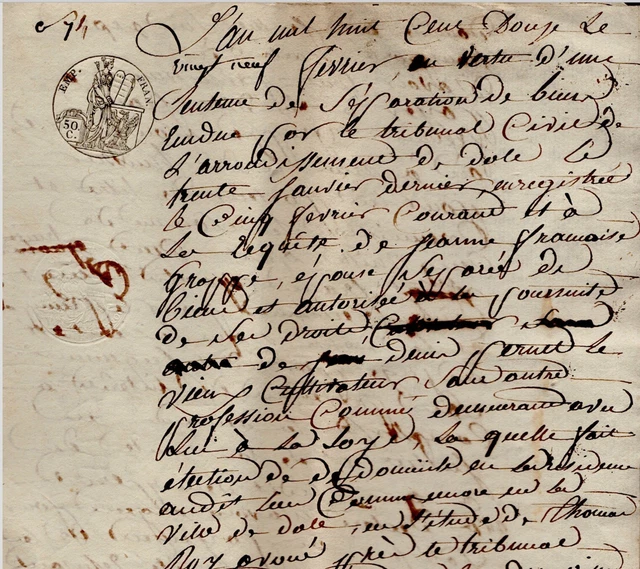 L'an mil huit Cent Douze Le
vingt neuf fevrier, en vertu d'une
EMP. FRAN.
50 C.
Sentence de Sépparation de biens
Rendue par le tribunal Civil de
L'arrondissement de dole Le
trente Janvier dernier enregistrée
le Cinq fevrier Courant et à
La Requête de jeanne françoise
épouse Sépparée de
biens et autorisée poursuite
de Ses droits
de denis pernet le
vieux Cultivateur Sans autre
Profession Commune demeurant avec
Lui à La Loye, La quelle fait
élection de domicile en La Résidence
audit Lieu Comme encore en La
ville de dole en L'étude de Thomas
avoué près le tribunal